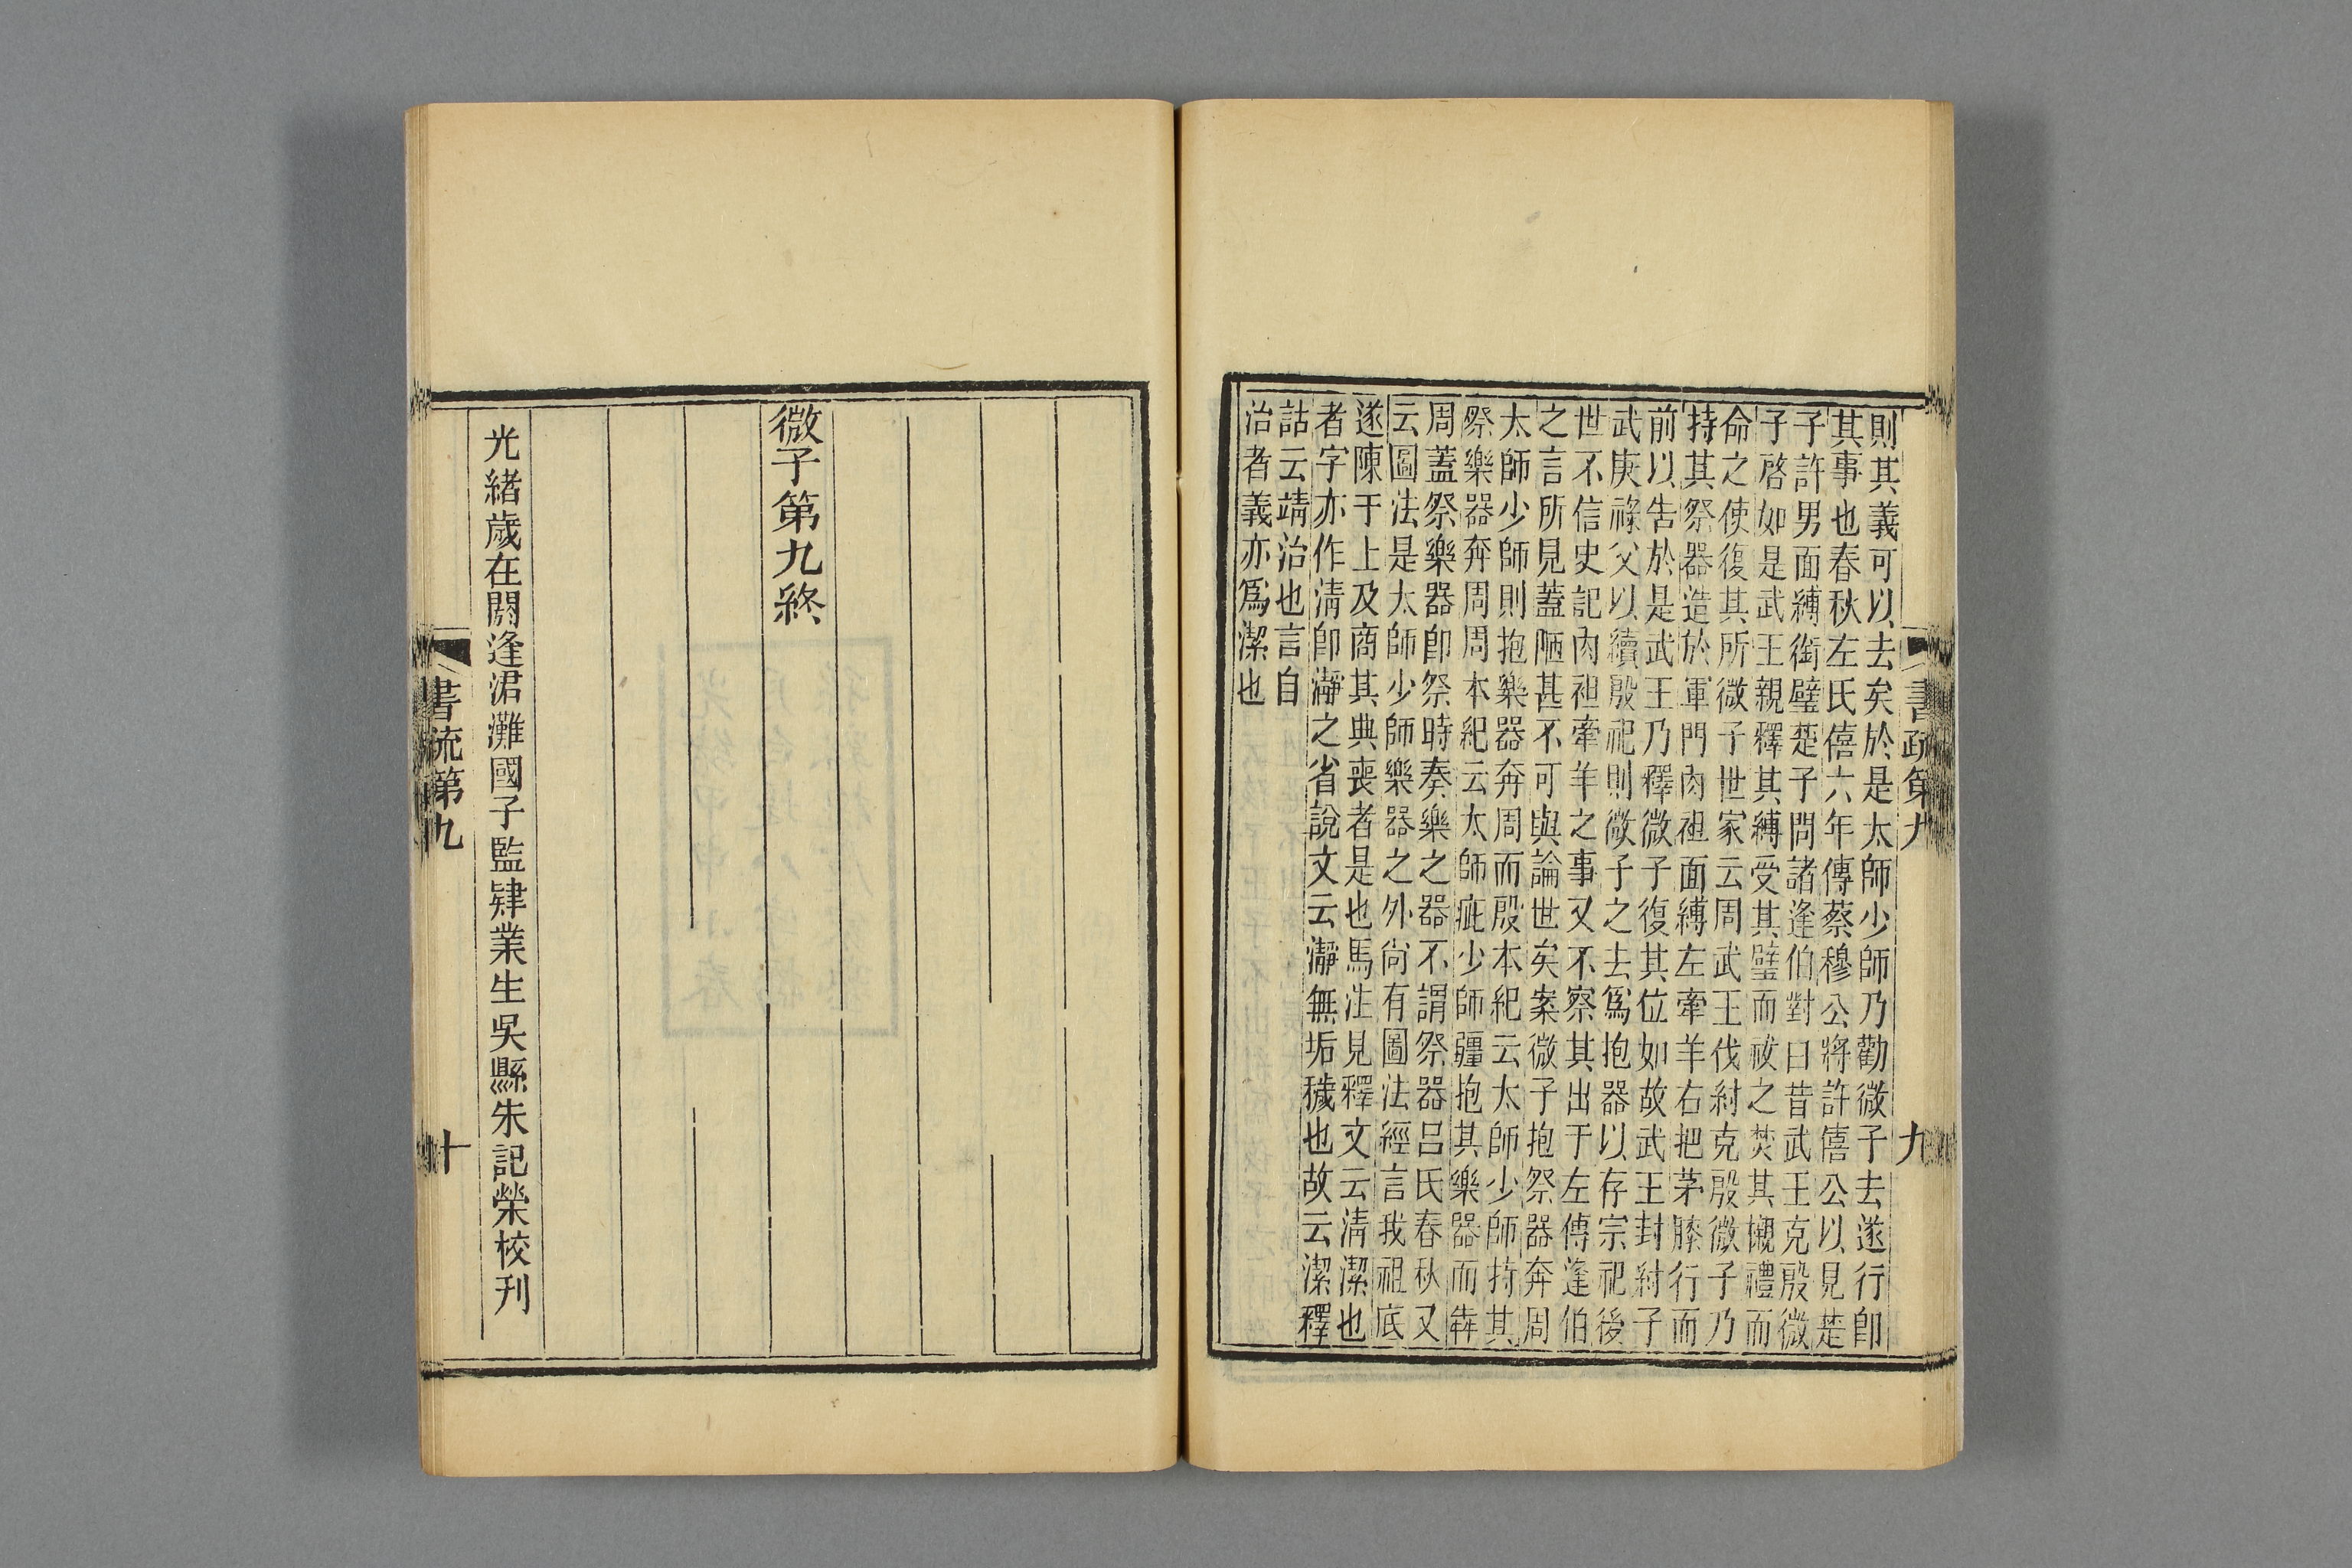 則其義可以去矣於是太師少師乃勸微子去遂行卽
其事也春秋左氏僖六年傳蔡穆公將許僖公以見楚
子許男面縛銜璧楚子問諸逢伯對曰昔武王克殷微
子啓如是武王親釋其縛受其璧而祓之焚其櫬禮而
命之使復其所微子世家云周武王伐紂克殷微子乃
持其祭器造於軍門肉袒面縛左牽羊右把茅膝行而
前以告於是武王乃釋微子復其位如故武王封紂子
武庚祿父以續殷祀則微子之去爲抱器以存宗祀後
世不信史記肉袒牽羊之事又不察其出于左傳逢伯
之言所見蓋陋甚不可與論世矣案微子抱祭器奔周
太師少師則抱樂器奔周而殷本紀云太師少師持其
祭樂器奔周周本紀云太師疵少師彊抱其樂器而犇
周蓋祭樂器卽祭時奏樂之器不謂祭器呂氏春秋又
云圖法是太師少師樂器之外尙有圖法經言我祖底
遂陳于上及商其典喪者是也馬注見釋文云淸潔也
者字亦作淸卽瀞之省說文云瀞無垢穢也故云潔釋
詁云靖治也言自
治者義亦爲潔也
書疏第九
九
微子第九終
光緖歲在閼逢涒灘國子監肄業生吳縣朱記榮校刊
書疏第九
十